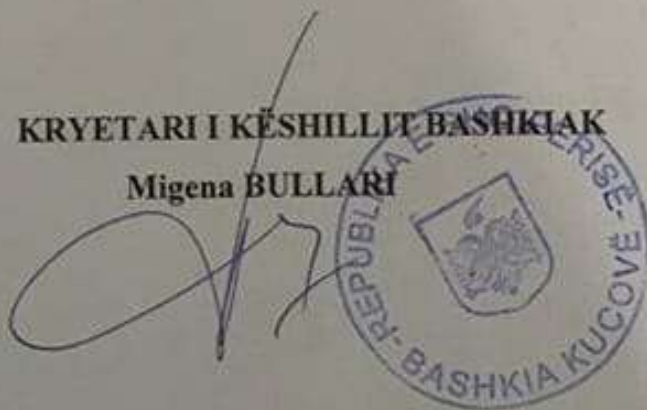 KRYETARI I KËSHILLIT BASHKIAK
Migena BULLARI
REPUBLIKA E SHQIPERISË
BASHKIA KUÇOVË